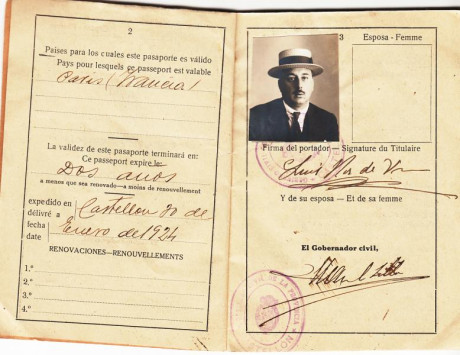 2
Países para los cuales este pasaporte es válido
Pays pour lesquels ce passeport est valable
Paris (Francia)
La validez de este pasaporte terminará en:
Ce passeport expire le:
Dos años
a menos que sea renovado—a moins de renouvellement
expedido en
délivré a
Castellon 30 de
fecha
date
Enero de 1924
RENOVACIONES—RENOUVELLEMENTS
1.°
2.°
3.°
4.°
3
Esposa - Femme
Firma del portador—Signature du Titulaire
Luis
Y de su esposa - Et de sa femme
El Gobernador civil,